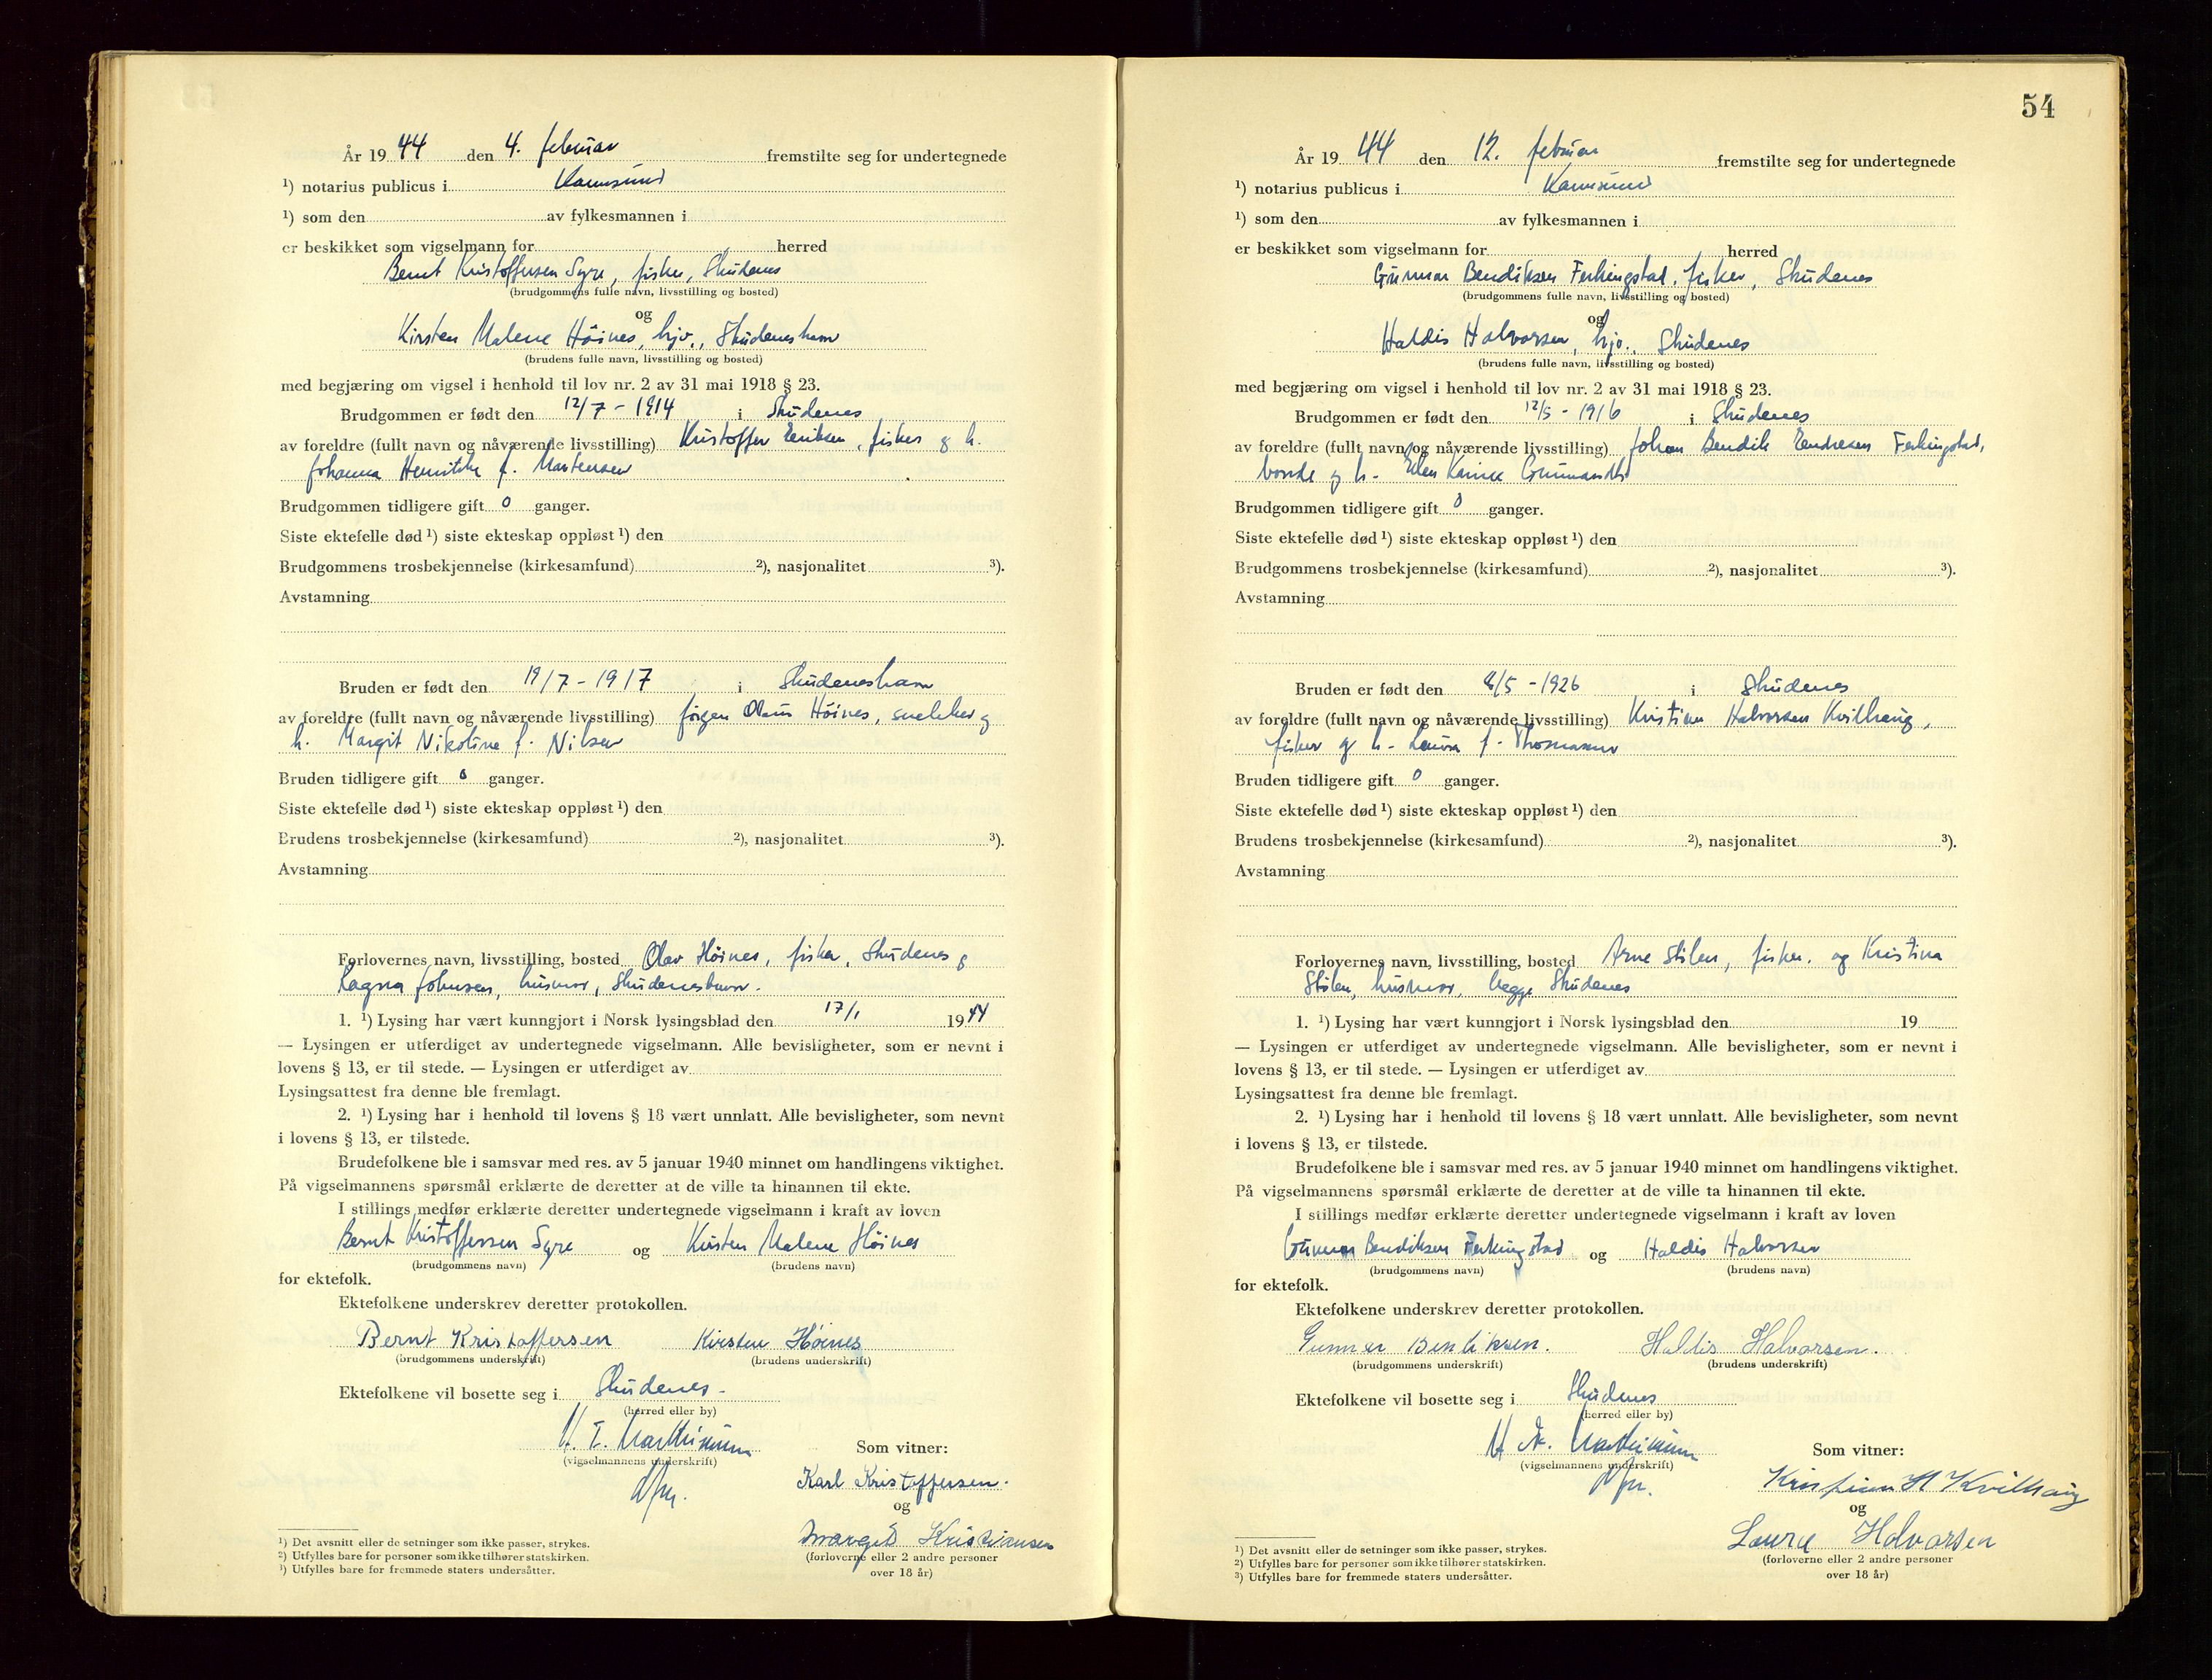 År 19 44 den 4. februar fremstilte seg for undertegnede
¹) notarius publicus i Karmsund
¹) som den av fylkesmannen i
er beskikket som vigselmann for herred
Bernt Kristoffersen Syre, fisker, Skudenes
(brudgommens fulle navn, livsstilling og bosted)
og
Kirsten Malene Höines, hjv., Skudeneshavn
(brudens fulle navn, livsstilling og bosted)
med begjæring om vigsel i henhold til lov nr. 2 av 31 mai 1918 § 23.
Brudgommen er født den 12/7 - 1914 i Skudenes
av foreldre (fullt navn og nåværende livsstilling) Kristoffer Eriksen, fisker og h.
Johanna Henrikke f. Mortensen
Brudgommen tidligere gift 0 ganger.
Siste ektefelle død ¹) siste ekteskap oppløst ¹) den
Brudgommens trosbekjennelse (kirkesamfund) ²), nasjonalitet ³).
Avstamning
Bruden er født den 19/7 - 1917 i Skudeneshavn
av foreldre (fullt navn og nåværende livsstilling) Jörgen Olaus Höines, snekker og
h. Margit Nikoline f. Nilsen
Bruden tidligere gift 0 ganger.
Siste ektefelle død ¹) siste ekteskap oppløst ¹) den
Brudens trosbekjennelse (kirkesamfund) ²), nasjonalitet ³).
Avstamning
Forlovernes navn, livsstilling, bosted Olav Höines, fisker, Skudenes og
Ragna Johnsen, husmor, Skudeneshavn.
1. ¹) Lysing har vært kunngjort i Norsk lysingsblad den 17/1 19 44
— Lysingen er utferdiget av undertegnede vigselmann. Alle bevisligheter, som er nevnt i
lovens § 13, er til stede. — Lysingen er utferdiget av
Lysingsattest fra denne ble fremlagt.
2. ¹) Lysing har i henhold til lovens § 18 vært unnlatt. Alle bevisligheter, som nevnt
i lovens § 13, er tilstede.
Brudefolkene ble i samsvar med res. av 5 januar 1940 minnet om handlingens viktighet.
På vigselmannens spørsmål erklærte de deretter at de ville ta hinannen til ekte.
I stillings medfør erklærte deretter undertegnede vigselmann i kraft av loven
Bernt Kristoffersen Syre og Kirsten Malene Höines
(brudgommens navn) (brudens navn)
for ektefolk.
Ektefolkene underskrev deretter protokollen.
Bernt Kristoffersen Kirsten Höines
(brudgommens underskrift) (brudens underskrift)
Ektefolkene vil bosette seg i Skudenes.
(herred eller by)
(vigselmannens underskrift) Som vitner:
Karl Kristoffersen.
og
Margit Kristiansen
(forloverne eller 2 andre personer
over 18 år)
¹) Det avsnitt eller de setninger som ikke passer, strykes.
²) Utfylles bare for personer som ikke tilhører statskirken.
¹) Utfylles bare for fremmede staters undersåtter.
54
År 19 44 den 12. februar fremstilte seg for undertegnede
¹) notarius publicus i Karmsund
¹) som den av fylkesmannen i
er beskikket som vigselmann for herred
Gunnar Bendiksen Ferkingstad, fisker, Skudenes
(brudgommens fulle navn, livsstilling og bosted)
og
Haldis Halvorsen, hjv., Skudenes
(brudens fulle navn, livsstilling og bosted)
med begjæring om vigsel i henhold til lov nr. 2 av 31 mai 1918 § 23.
Brudgommen er født den 12/5 - 1916 i Skudenes
av foreldre (fullt navn og nåværende livsstilling) Johan Bendik Endresen Ferkingstad,
bonde og h.
Brudgommen tidligere gift 0 ganger.
Siste ektefelle død ¹) siste ekteskap oppløst ¹) den
Brudgommens trosbekjennelse (kirkesamfund) ²), nasjonalitet ³).
Avstamning
Bruden er født den /5 - 1926 i Skudenes
av foreldre (fullt navn og nåværende livsstilling) Kristian Halvorsen Kvilhaug,
fisker og h. Laura f. Thomassen
Bruden tidligere gift 0 ganger.
Siste ektefelle død ¹) siste ekteskap oppløst ¹) den
Brudens trosbekjennelse (kirkesamfund) ²), nasjonalitet ³).
Avstamning
Forlovernes navn, livsstilling, bosted Arne Stölen, fisker, og Kristina
Stölen, husmor, begge Skudenes
1. ¹) Lysing har vært kunngjort i Norsk lysingsblad den 19
— Lysingen er utferdiget av undertegnede vigselmann. Alle bevisligheter, som er nevnt i
lovens § 13, er til stede. — Lysingen er utferdiget av
Lysingsattest fra denne ble fremlagt.
2. ¹) Lysing har i henhold til lovens § 18 vært unnlatt. Alle bevisligheter, som nevnt
i lovens § 13, er tilstede.
Brudefolkene ble i samsvar med res. av 5 januar 1940 minnet om handlingens viktighet.
På vigselmannens spørsmål erklærte de deretter at de ville ta hinannen til ekte.
I stillings medfør erklærte deretter undertegnede vigselmann i kraft av loven
Gunnar Bendiksen Ferkingstad og Haldis Halvorsen
(brudgommens navn) (brudens navn)
for ektefolk.
Ektefolkene underskrev deretter protokollen.
Gunnar Bendiksen. Haldis Halvorsen.
(brudgommens underskrift) (brudens underskrift)
Ektefolkene vil bosette seg i Skudenes
(herred eller by)
(vigselmannens underskrift) Som vitner:
Kristian H Kvilhaug
og
Laura Halvorsen
(forloverne eller 2 andre personer
over 18 år)
¹) Det avsnitt eller de setninger som ikke passer, strykes.
²) Utfylles bare for personer som ikke tilhører statskirken.
³) Utfylles bare for fremmede staters undersåtter.